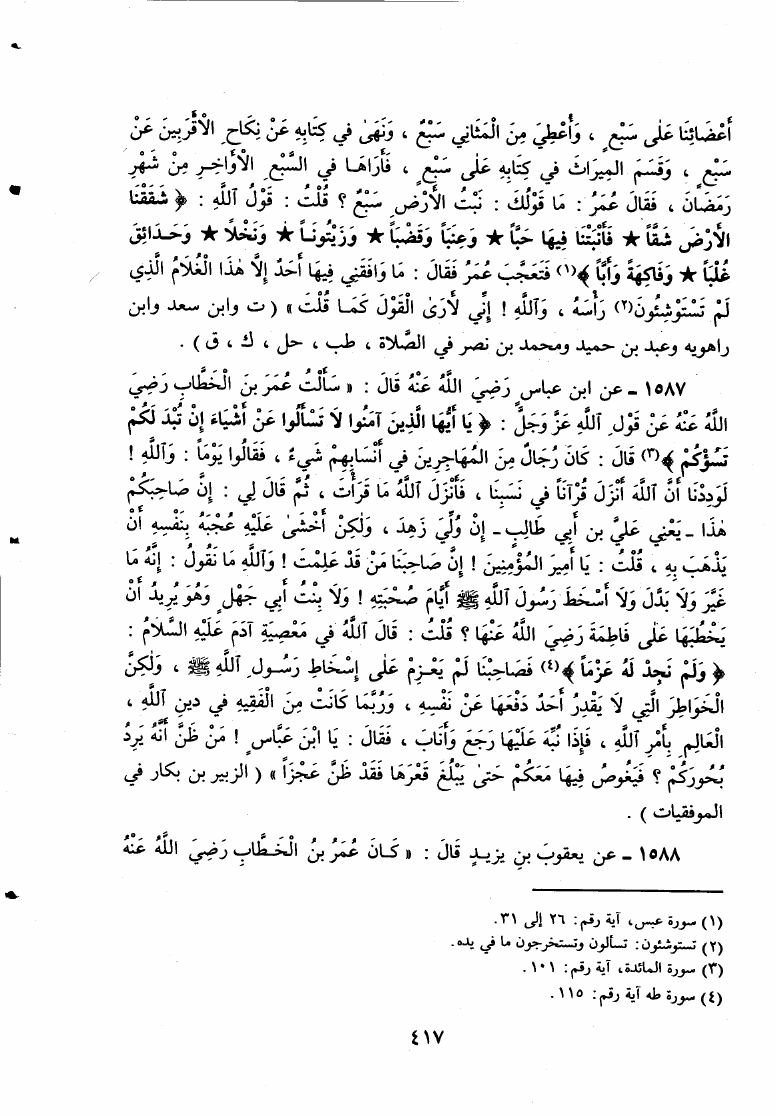 أَعْضَائِنَا عَلَى سَبْعٍ ، وَأُعْطِيَ مِنَ الْمَثَانِي سَبْعٌ ، وَنَهَىٰ فِي كِتَابِهِ عَنْ نِكَاحِ الْأَقْرَبِينَ عَنْ
سَبْعٍ ، وَقَسَمَ المِيرَاثَ فِي كِتَابِهِ عَلَى سَبْعٍ ، فَأَرَاهَا فِي السَّبْعِ الْأَوَاخِرِ مِنْ شَهْرِ
رَمَضَانَ ، فَقَالَ عُمَرُ : مَا قَوْلُكَ : نَبْتُ الْأَرْضِ سَبْعٌ ؟ قُلْتُ : قَوْلُ آللَّهِ : ﴿ شَقَقْنَا
الأَرْضَ شَقّاً ★ فَأَنْبَتْنَا فِيهَا حَبّاً ★ وَعِنَباً وَقَضْباً ★ وَزَيْتُوناً ★ وَنَخْلًا ★ وَحَدائِقَ
غُلْبَاً ★ وَفَاكِهَةً وَأَبّاً ﴾(١) فَتَعَجَّبَ عُمَرُ فَقَالَ : مَا وَافَقَنِي فِيهَا أَحَدٌ إِلَّا هٰذَا الْغُلَامُ الَّذِي
لَمْ تَسْتَوْشِئُونَ(٢) رَأْسَهُ ، وَآللَّهِ ! إِنِّي لَأَرَىٰ الْقَوْلَ كَمَا قُلْتَ » ( ت وابن سعد وابن
راهويه وعبد بن حميد ومحمد بن نصر في الصَّلاة ، طب ، حل ، ك ، ق ) .
١٥٨٧ ـ عن ابن عباسٍ رَضِيَ اللَّهُ عَنْهُ قَالَ : « سَأَلْتُ عُمَرَ بنَ الْخَطَّابِ رَضِيَ
اللَّهُ عَنْهُ عَنْ قَوْلِ آللَّهِ عَزَّ وَجَلَّ : ﴿ يَا أَيُّهَا الَّذِينَ آمَنُوا لَا تَسْأَلُوا عَنْ أَشْيَاءَ إِنْ تُبْدَ لَكُمْ
تَسُؤْكُمْ ﴾(٣) قَالَ : كَانَ رُجَالٌ مِنَ المُهَاجِرِينَ فِي أَنْسَابِهِمْ شَيءٌ ، فَقَالُوا يَوْماً : وَآللَّهِ !
لَوَدِدْنَا أَنَّ آللَّهَ أَنْزَلَ قُرْآناً فِي نَسَبِنَا ، فَأَنْزَلَ آللَّهُ مَا قَرَأْتَ ، ثُمَّ قَالَ لِي : إِنَّ صَاحِبَكُمْ
هٰذَا ـ يَعْنِي عَلِيَّ بن أَبِي طَالِبٍ ـ إِنْ وُلِّيَ زَهِدَ ، وَلٰكِنْ أَخْشَىٰ عَلَيْهِ عُجْبَهُ بِنَفْسِهِ أَنْ
يَذْهَبَ بِهِ ، قُلْتُ : يَا أَمِيرَ المُؤْمِنِينَ ! إِنَّ صَاحِبَنَا مَنْ قَدْ عَلِمْتَ ! وَآللَّهِ مَا نَقُولُ : إِنَّهُ مَا
غَيَّرَ وَلَا بَدَّلَ وَلَا أَسْخَطَ رَسُولَ آللَّهِ ﷺ أَيَّامَ صُحْبَتِهِ ! وَلَا بِنْتُ أَبِي جَهْلٍ وَهُوَ يُرِيدُ أَنْ
يَخْطُبَهَا عَلَى فَاطِمَةَ رَضِيَ اللَّهُ عَنْهَا ؟ قُلْتُ : قَالَ آللَّهُ فِي مَعْصِيَةِ آدَمَ عَلَيْهِ السَّلَامُ :
﴿ وَلَمْ نَجِدْ لَهُ عَزْماً ﴾(٤) فَصَاحِبُنَا لَمْ يَعْزِمْ عَلَى إِسْخَاطِ رَسُولِ آللَّهِ ﷺ ، وَلٰكِنَّ
الْخَوَاطِرَ الَّتِي لَا يَقْدِرُ أَحَدٌ دَفْعَهَا عَنْ نَفْسِهِ ، وَرُبَّمَا كَانَتْ مِنَ الْفَقِيهِ فِي دينِ آللَّهِ ،
الْعَالِمِ بِأَمْرِ آللَّهِ ، فَإِذَا نُبِّهَ عَلَيْهَا رَجَعَ وَأَنَابَ ، فَقَالَ : يَا ابْنَ عَبَّاسٍ ! مَنْ ظَنَّ أَنَّهُ يَرِدُ
بُحُورَكُمْ ؟ فَيَغُوصُ فِيهَا مَعَكُمْ حَتىٰ يَبْلُغَ قَعْرَهَا فَقَدْ ظَنَّ عَجْزاً » ( الزبير بن بكار في
الموفقيات ) .
١٥٨٨ ـ عن يعقوبَ بنِ يزيدٍ قَالَ : « كَانَ عُمَرُ بنُ الْخَطَّابِ رَضِيَ اللَّهُ عَنْهُ
(١) سورة عبس، آية رقم: ٢٦ إلى ٣١.
(٢) تستوشئون: تسألون وتستخرجون ما في يده.
(٣) سورة المائدة، آية رقم: ١٠١.
(٤) سورة طه آية رقم: ١١٥.
٤١٧